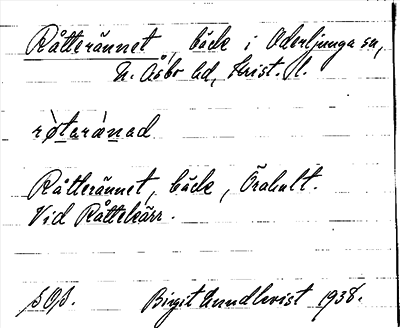 Råtterännet, bäck i Oderljunga sn,
N. Åsbo hd, Krist. l.
rò̱tərànəd
Råtterännet, bäck, Örahult.
Vid Råttekärr.
s Os. Birgit Lundkvist 1938.